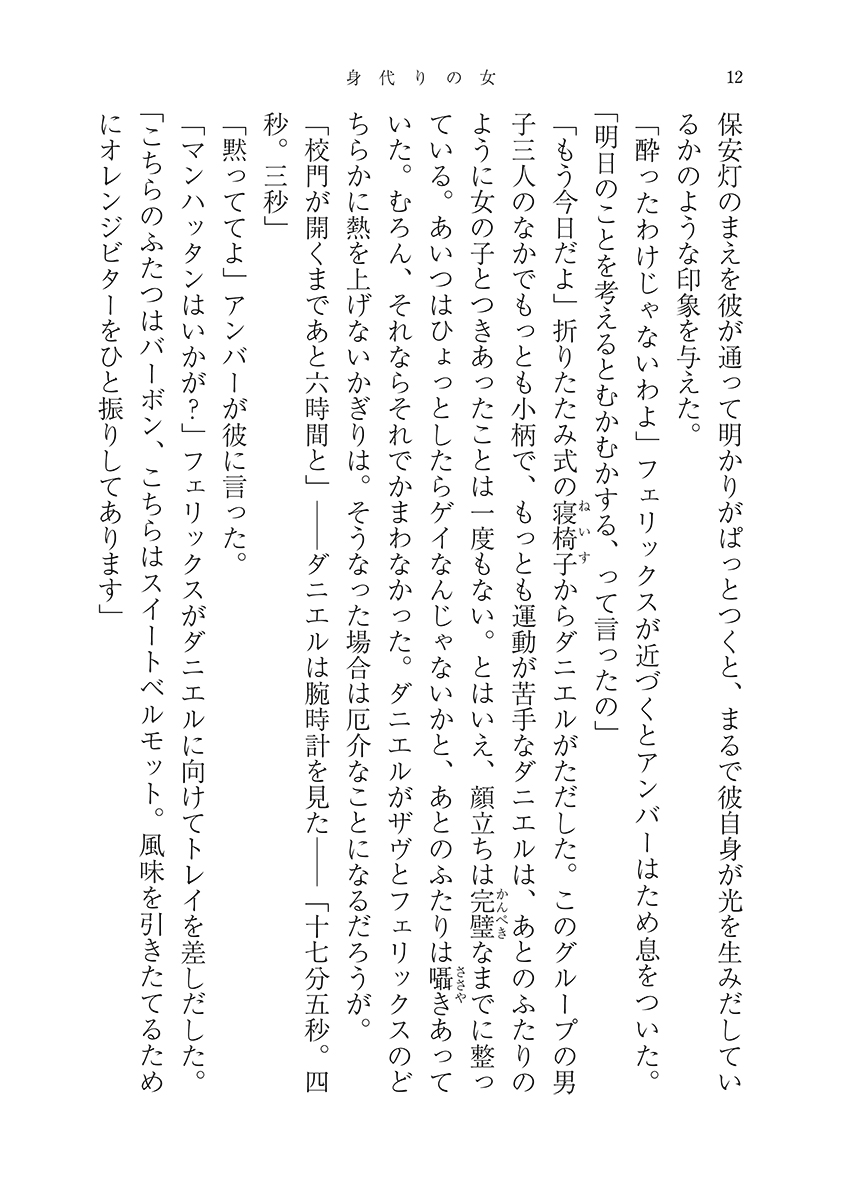 身代りの女
12
保安灯のまえを彼が通って明かりがぱっとつくと、まるで彼自身が光を生みだしてい
るかのような印象を与えた。
「酔ったわけじゃないわよ」フェリックスが近づくとアンバーはため息をついた。
「明日のことを考えるとむかむかする、って言ったの」
「もう今日だよ」折りたたみ式の寝椅子からダニエルがただした。このグループの男
ねいす
子三人のなかでもっとも小柄で、もっとも運動が苦手なダニエルは、あとのふたりの
ように女の子とつきあったことは一度もない。とはいえ、顔立ちは完璧なまでに整っ
かんぺき
ている。あいつはひょっとしたらゲイなんじゃないかと、あとのふたりは囁きあって
ささや
いた。むろん、それならそれでかまわなかった。ダニエルがザヴとフェリックスのど
ちらかに熱を上げないかぎりは。そうなった場合は厄介なことになるだろうが。
「校門が開くまであと六時間と」――ダニエルは腕時計を見た――「十七分五秒。四
秒。三秒」
「黙っててよ」アンバーが彼に言った。
「マンハッタンはいかが？」フェリックスがダニエルに向けてトレイを差しだした。
「こちらのふたつはバーボン、こちらはスイートベルモット。風味を引きたてるため
にオレンジビターをひと振りしてあります」